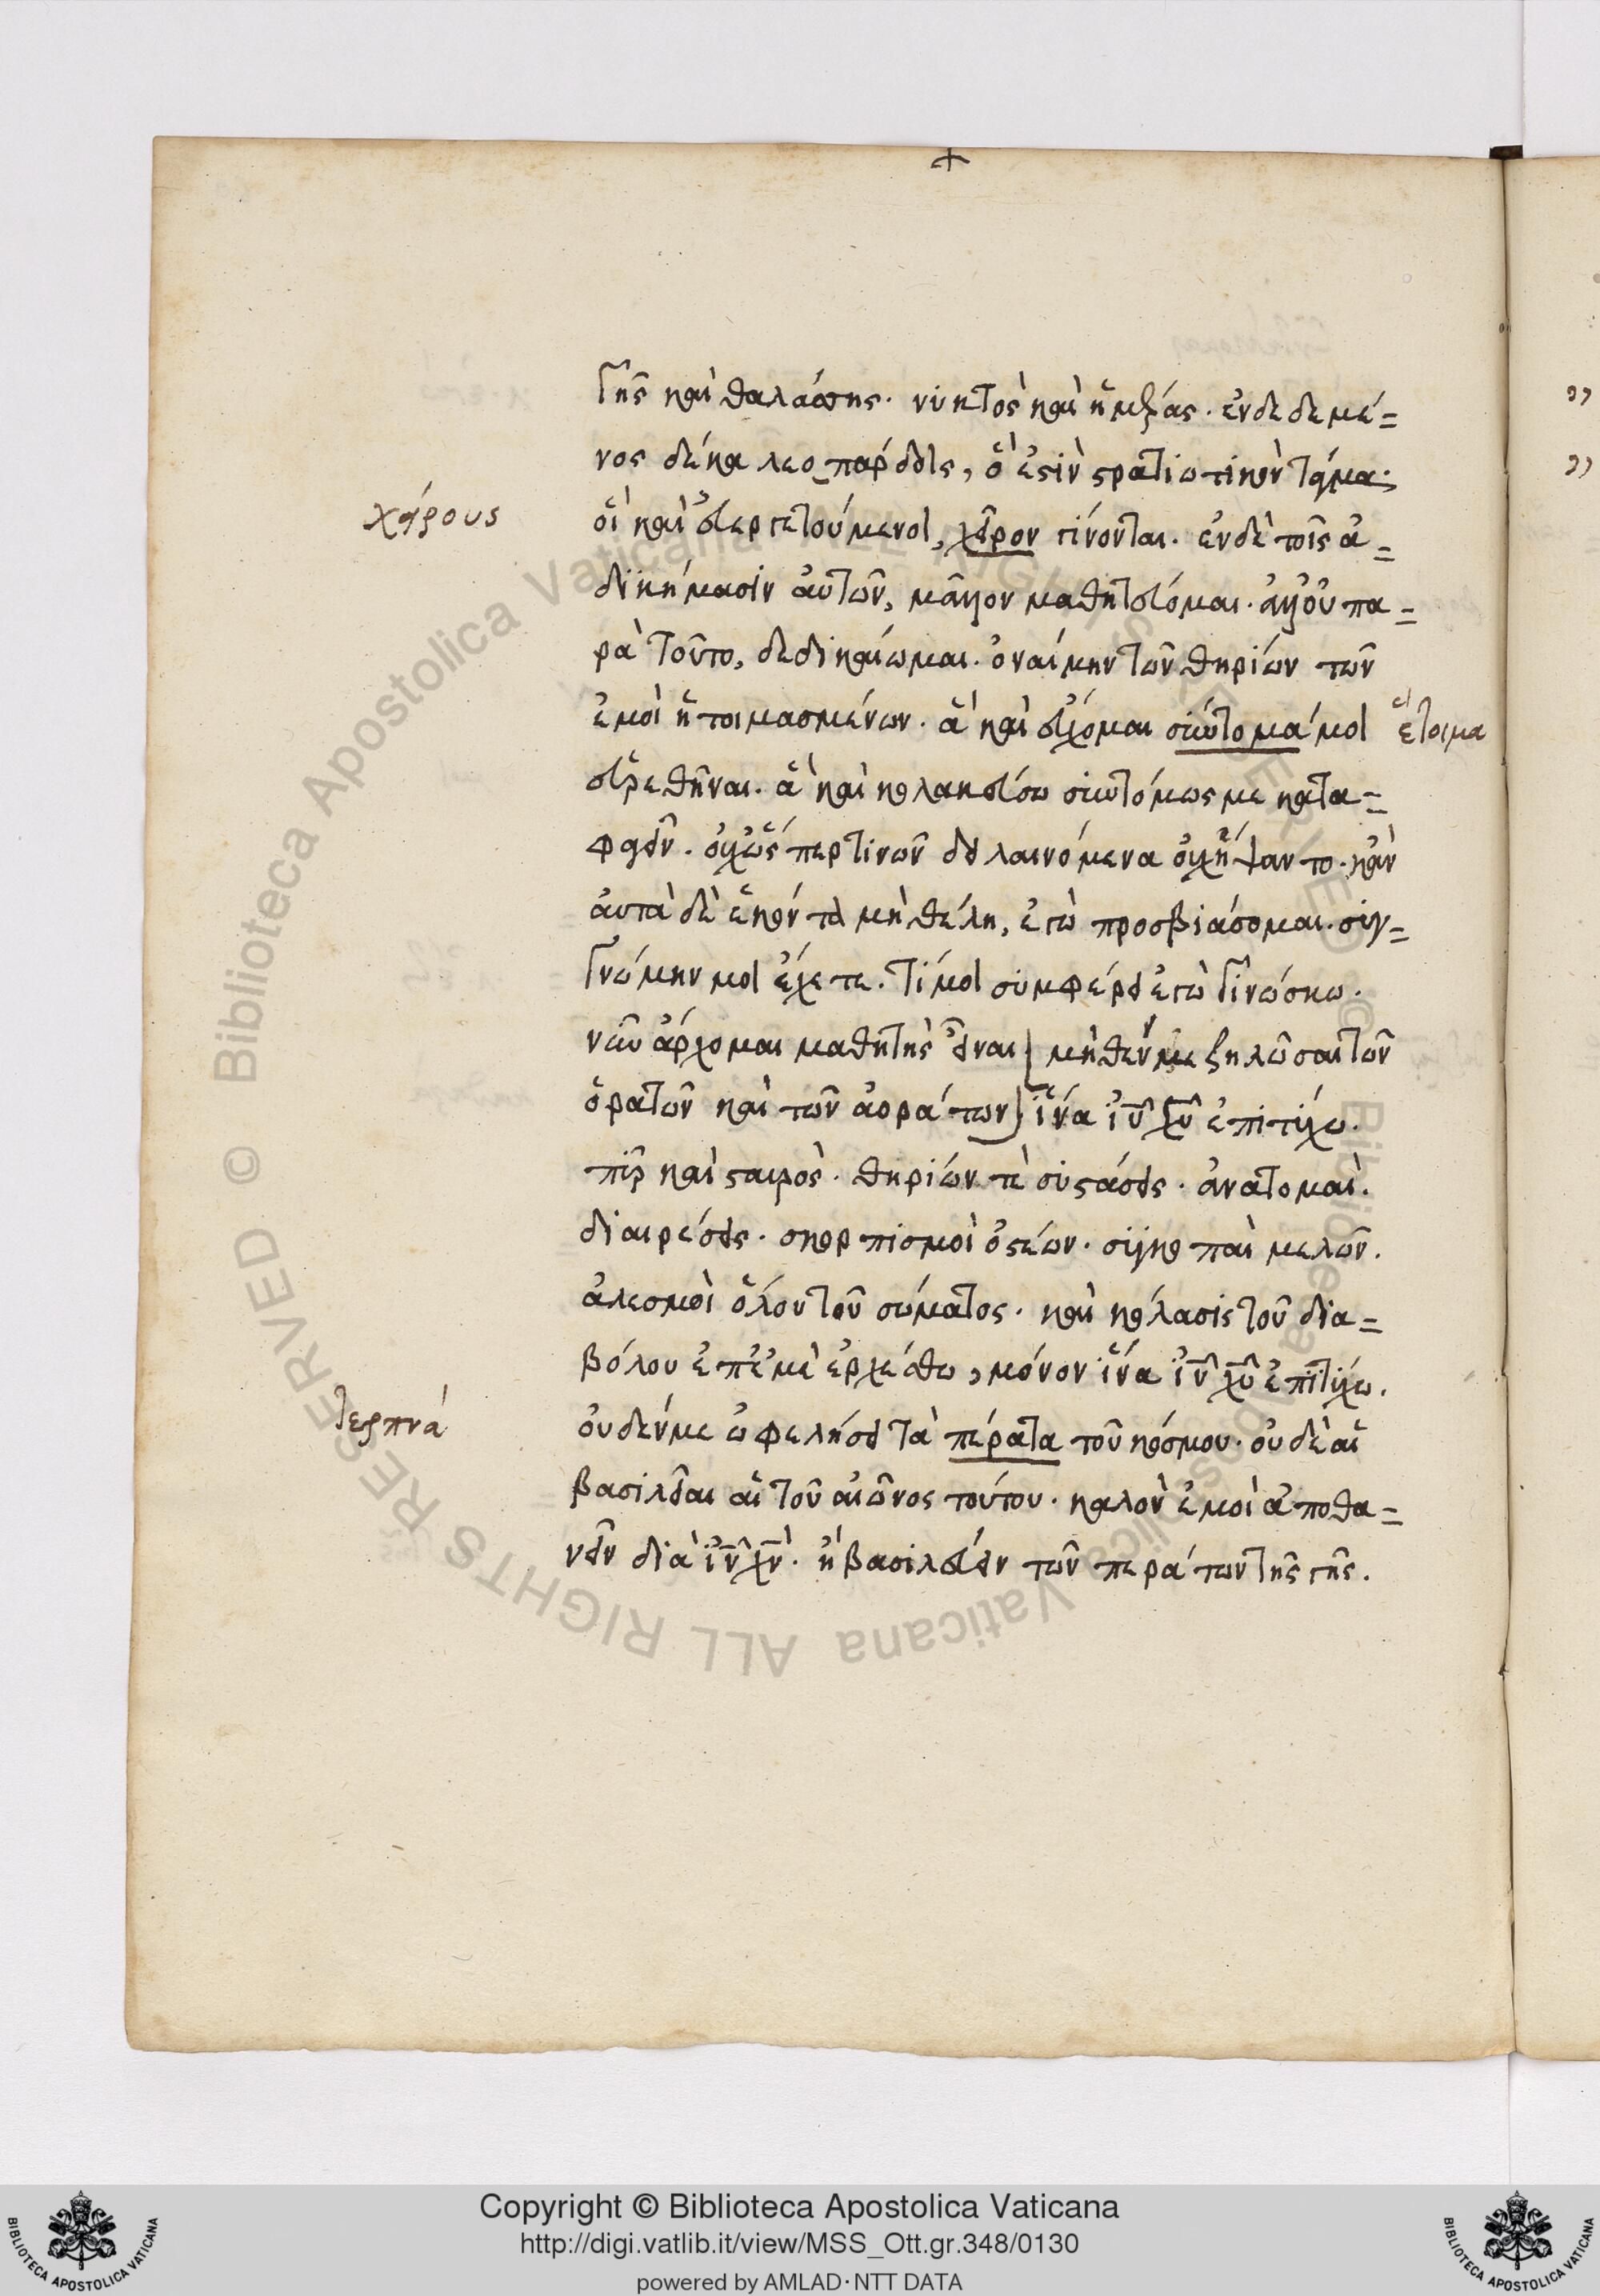 γῆς καὶ θαλάσσης. νυκτὸς καὶ ἡμέρας. ἐνδεδεμέ=
νος δέκα λεοπάρδοις, ὅ ἐστιν στρατιωτικὸν τάγμα·
χείρους
οἳ καὶ εὐεργετούμενοι, χεῖρον γίνονται. ἐν δὲ τοῖς ἀ=
δικήμασιν αὐτῶν, μᾶλλον μαθητεύομαι. ἀλλ' οὐ πα=
ρὰ τοῦτο, δεδικαίωμαι. ὀναίμην τῶν θηρίων τῶν
ἐμοὶ ἡτοιμασμένων. ἃ καὶ εὔχομαι σύντομά μοι
ἕτοιμα
εὑρεθῆναι. ἃ καὶ κολακεύσω συντόμως με κατα=
φαγεῖν. οὐχ ὥσπερ τινῶν δειλαινόμενα οὐχ ἥψαντο. κἂν
αὐτὰ δὲ ἑκόντα μὴ θέλῃ, ἐγὼ προσβιάσομαι. συγ=
γνώμην μοι ἔχετε. τί μοι συμφέρει ἐγὼ γινώσκω.
νῦν ἄρχομαι μαθητὴς εἶναι} μηθέν με ζηλῶσαι τῶν
ὁρατῶν καὶ τῶν ἀοράτων} ἵνα ἰῦ χῦ ἐπιτύχω.
πῦρ καὶ σταυρὸς. θηρίων τὲ συστάσεις. ἀνατομαὶ.
διαιρέσεις. σκορπισμοὶ ὀστέων. συγκοπαὶ μελῶν.
ἀλεσμοὶ ὅλου τοῦ σώματος. καὶ κόλασις τοῦ δια=
βόλου ἐπ' ἐμὲ ἐρχέσθω, μόνον ἵνα ἰῦ χῦ ἐπιτύχω.
τερπνά
οὐδέν με ὠφελήσει τὰ πέρατα τοῦ κόσμου. οὐδὲ αἱ
βασιλεῖαι αἱ τοῦ αἰῶνος τούτου. καλὸν ἐμοὶ ἀποθα=
νεῖν διὰ ἰῦν χὺν. ἢ βασιλεύειν τῶν περάτων τῆς γῆς.
Copyright © Biblioteca Apostolica Vaticana
http://digi.vatlib.it/view/MSS_Ott.gr.348/0130
powered by AMLAD·NTT DATA
BIBLIOTECA APOSTOLICA VATICANA
BIBLIOTECA APOSTOLICA VATICANA
© Biblioteca Apostolica Vaticana ALL RIGHTS RESERVED © Biblioteca Apostolica Vaticana ALL RIGHTS RESERVED